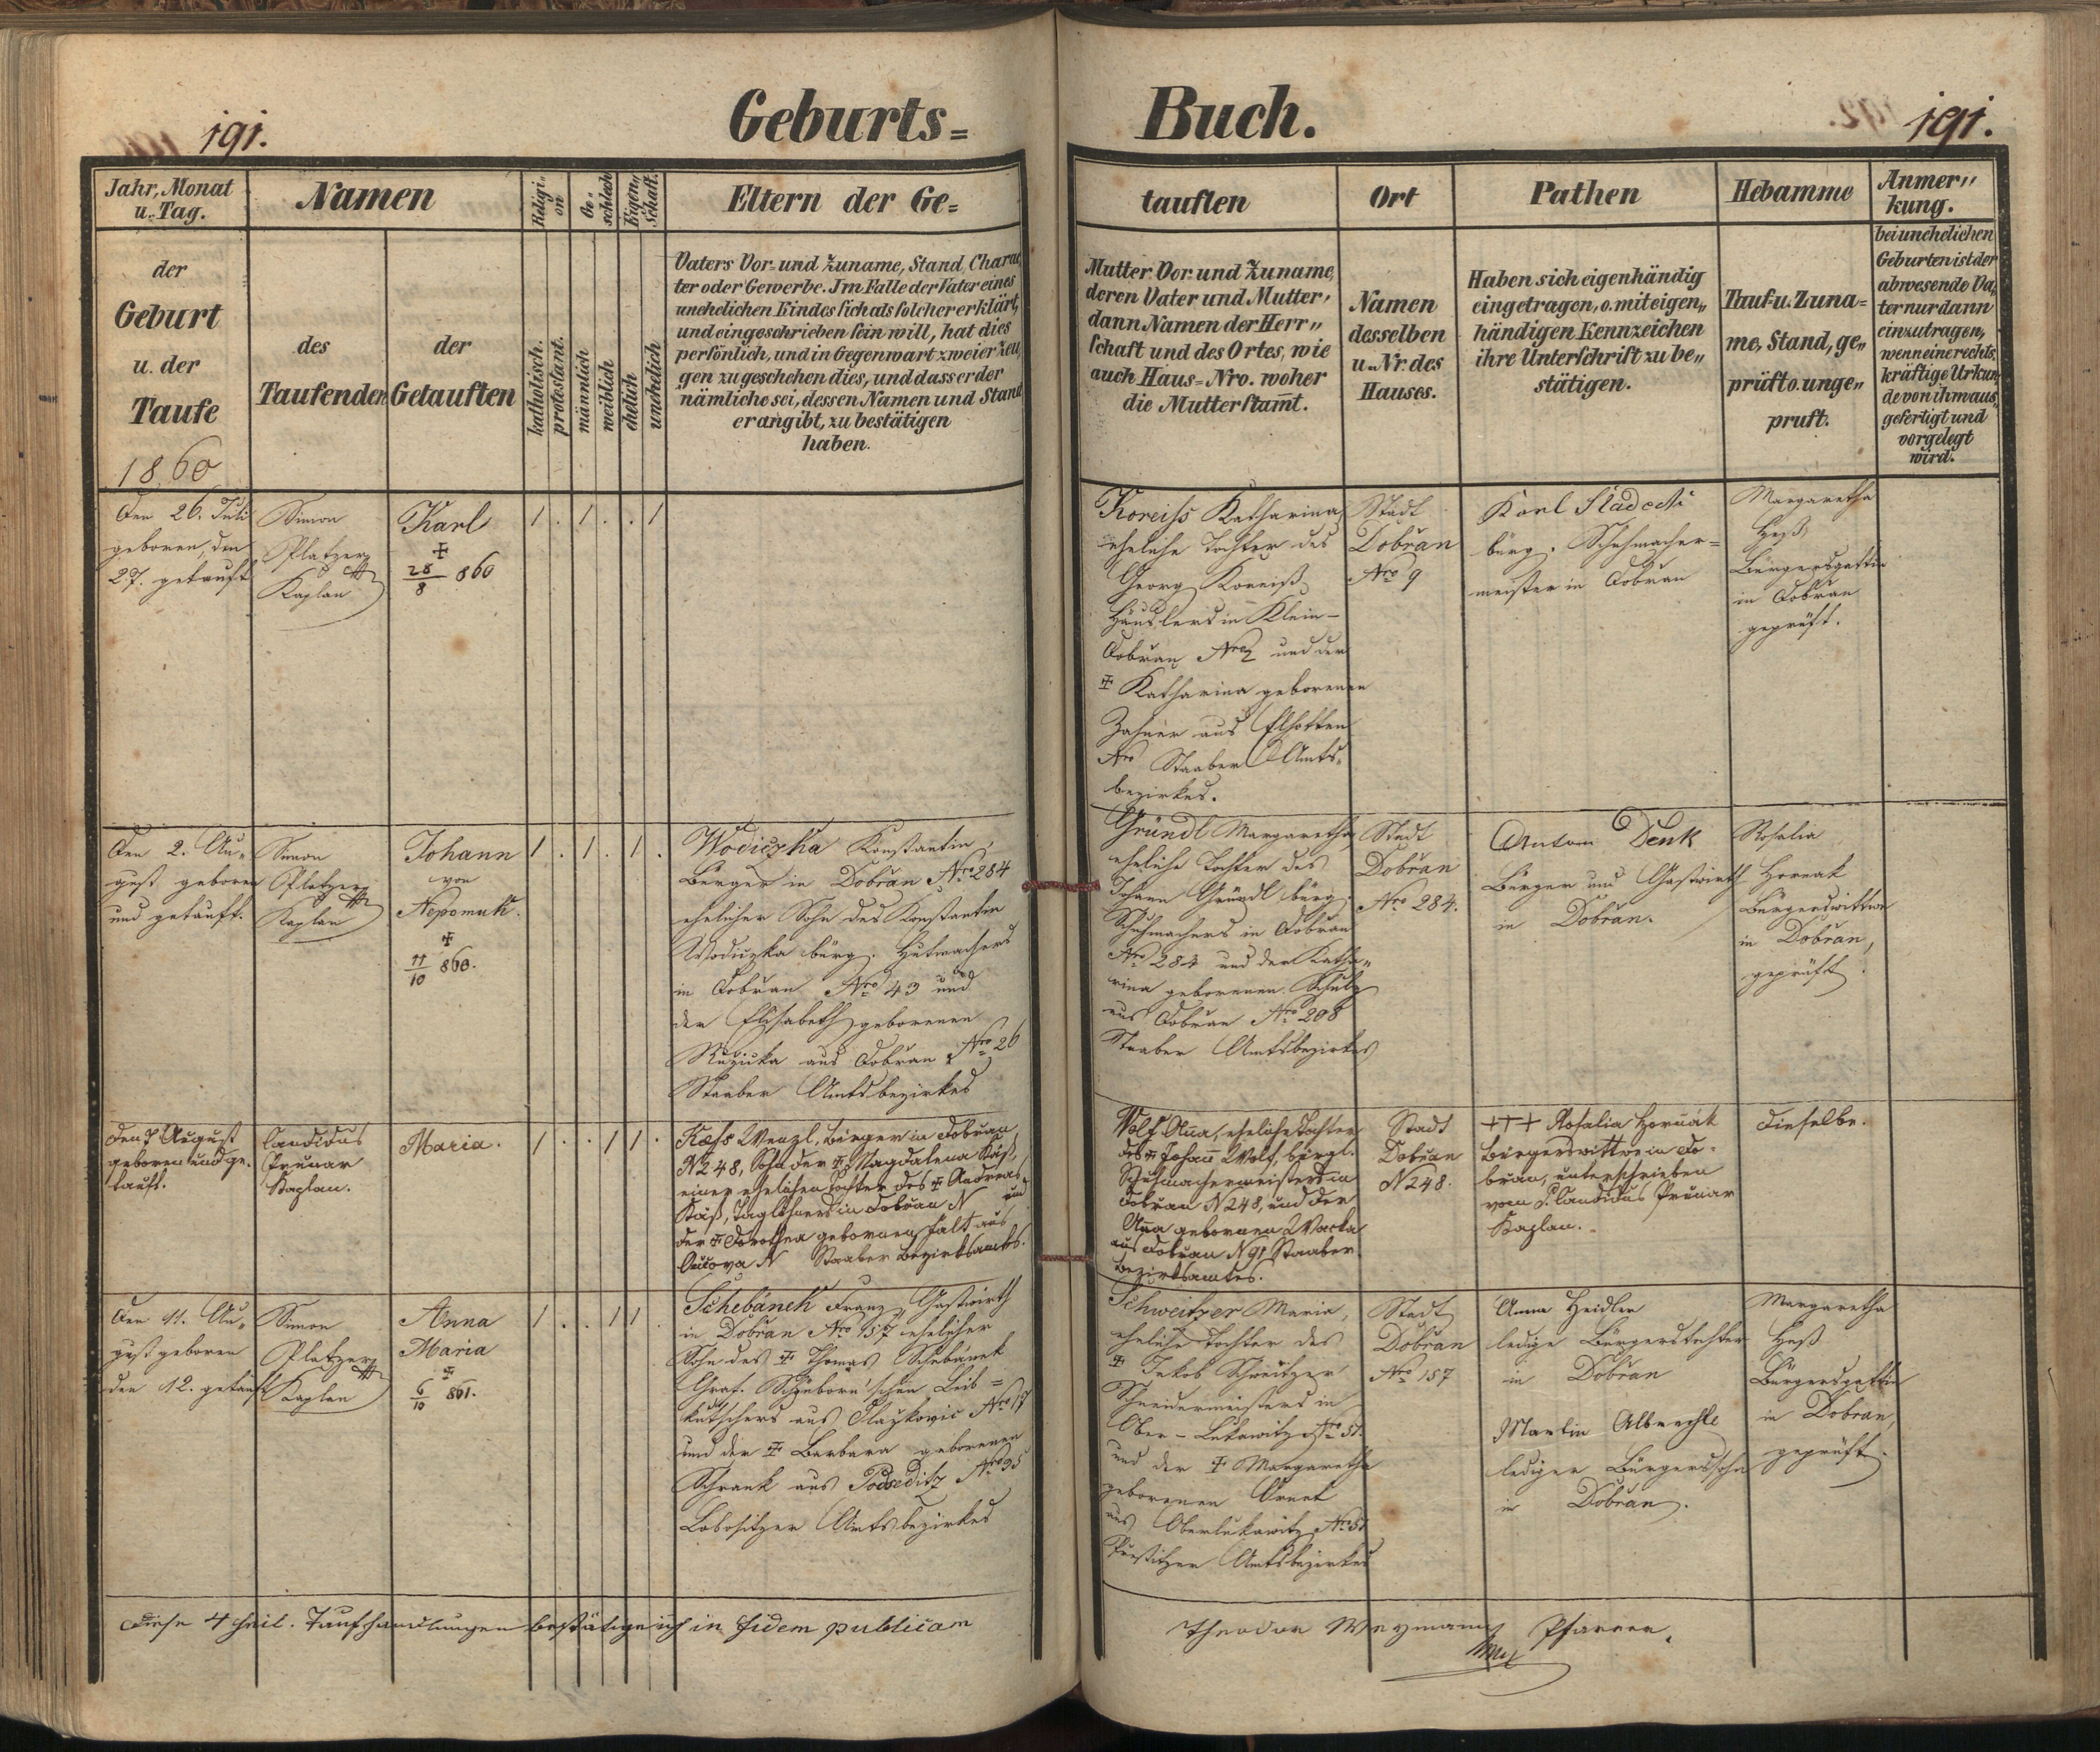 191.
Geburts=
Buch.
191.
Jahr, Monat
u. Tag.
der
Geburt
u. der
Taufe
1860
Namen
des
Taufenden
der
Getauften
Religi„
on
katholisch.
protestant.
Ge„
schlech
männlich
weiblich
Eigen„
schaft.
ehelich
unehelich
Eltern der Ge=
Vaters Vor- und Zuname, Stand, Charac
ter oder Gewerbe. Im Falle der Vater eines
unehelichen Kindes sich als solcher erklärt,
und eingeschrieben sein will, hat dies
persönlich, und in Gegenwart zweier Zeu
gen zu geschehen dies, und dass er der
nämliche sei, dessen Namen und Stand
er angibt, zu bestätigen
haben.
tauften
Mutter Vor- und Zuname,
deren Vater und Mutter,
dann Namen der Herr„
schaft und des Ortes, wie
auch Haus=Nro. woher
die Mutter stam̅t.
Ort
Namen
desselben
u. Nr. des
Hauses.
Pathen
Haben sich eigenhändig
eingetragen, o. mit eigen„
händigen Kennzeichen
ihre Unterschrift zu be„
stätigen.
Hebamme
Tauf- u. Zuna=
me, Stand, ge„
prüft o. unge„
pruft.
Anmer„
kung.
bei unehelichen
Geburten ist der
abwesende Va,
ter nur dann
einzutragen,
wenn eine rechts,
kräftige Urkun
de von ihm aus,
gefertigt und
vorgelegt
wird.
Den 26. Juli
geboren, den
27. getauft
Simon
Platzer
Kaplan
Karl
✠
28/8 860
1 . 1 . . 1
Koreiss Katharina
eheliche Tochter des
Georg Koreiß
Häuslers in Klein-
Dobran Nro 2 und der
✠ Katharina geborenen
Zahner aus Elhotten
Nro Staaber Amts„
bezirkes.
Stadt
Dobran
Nro 9
Karl Sladecki
bürg. Schuhmacher=
meister in Dobran
Margaretha
Heß
Bürgersgattin
in Dobran
geprüft.
Den 2. Au„
gust geboren
und getauft.
Simon
Platzer
Kaplan
Johann
von
Nepomuk.
✠
11/10 860.
1 . 1 . 1 .
Wodiczka Konstantin,
Bürger in Dobran Nro 284
ehelicher Sohn des Konstantin
Wodiczka bürg. Hutmachers
in Dobran Nro 43 und
der Elisabeth geborenen
Ruzicka aus Dobran Nro 26
Staaber Amtsbezirkes
Gründl Margaretha
eheliche Tochter des
Johann Gründl bürg.
Schuhmachers in Dobran
Nro 284 und der Katha„
rina geborenen Schulz
aus Dobran Nro 208
Staaber Amtsbezirkes
Stadt
Dobran
Nro 284.
Anton Denk
Bürger und Gastwirth
in Dobran.
Rosalia
Hornak
Bürgerswittwe
in Dobran,
geprüft.
Den 7 August
geboren und ge.
tauft.
Candidus
Prunar
Kaplan.
Maria.
1 . . 1 1 .
Kæss Wenzl, Bürger in Dobran
N 248, Sohn der ✠ Magdalena Käß,
einer ehelichen Tochter des ✠ Andreas
Käß, Taglöhners in Dobran N und
der ✠ Dorothea gebornen Falt aus
Aucova N Staaber Bezirksamts.
Wolf Ana, eheliche Tochter
des ✠ Johann Wolf, bürgl.
Schuhmachermeisters in
Dobran N 248, und der
Ana gebornen Wacka
aus Dobran N 91 Staaber
Bezirksamtes.
Stadt
Dobran
N 248.
+++ Rosalia Hornák
Bürgerswittwe in Do-
bran, unterschrieben
vom P. Candidus Prunar
Kaplan.
Dieselbe.
Den 11. Au„
gust geboren
den 12. getauft
Simon
Platzer
Kaplan
Anna
Maria
✠
6/10 861.
1 . . 1 1 .
Schebánek Franz, Gastwirth
in Dobran Nro 157 ehelicher
Sohn des ✠ Thomas Schebánek
Graf. Schönborn'schen Leib=
kutschers aus Plazkovic Nro 17
und der ✠ Barbara geborenen
Schrank aus Podseditz Nro 35
Lobositzer Amtsbezirkes
Schweitzer Maria,
eheliche Tochter des
✠ Jakob Schweitzer
Schneidermeisters in
Ober-Lukawitz Nro 51.
und der ✠ Margaretha
geborenen Ornet
aus Oberlukawitz Nro 51
Prestitzer Amtsbezirkes
Stadt
Dobran
Nro 157
Anna Heidler
ledige Bürgerstochter
in Dobran
Martin Albrecht
lediger Bürgerssohn
in Dobran.
Margaretha
Heß
Bürgersgattin
in Dobran,
geprüft.
Diese 4 heil. Taufhandlungen bestätige ich in fidem publicam
Theodor Weymann Pfarrer.